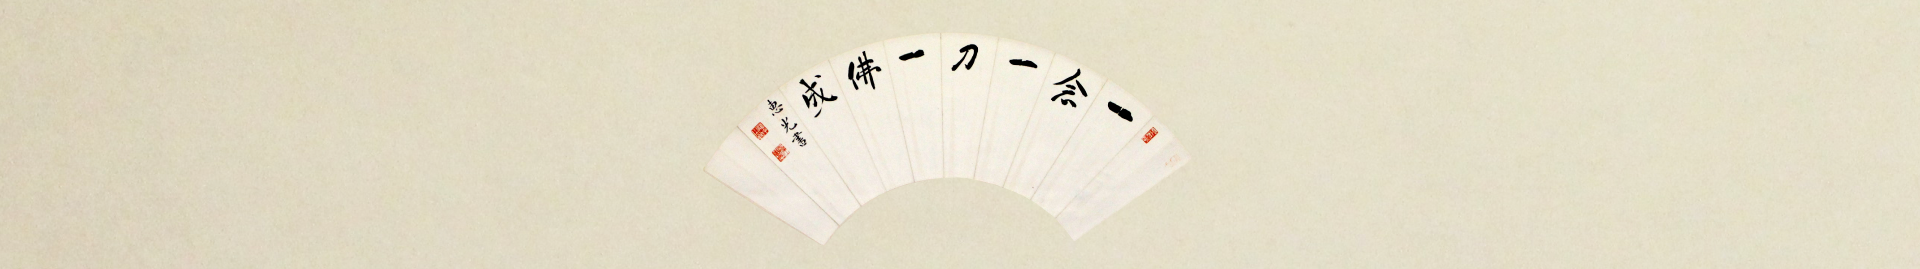 一念一刀一佛成
惠光書